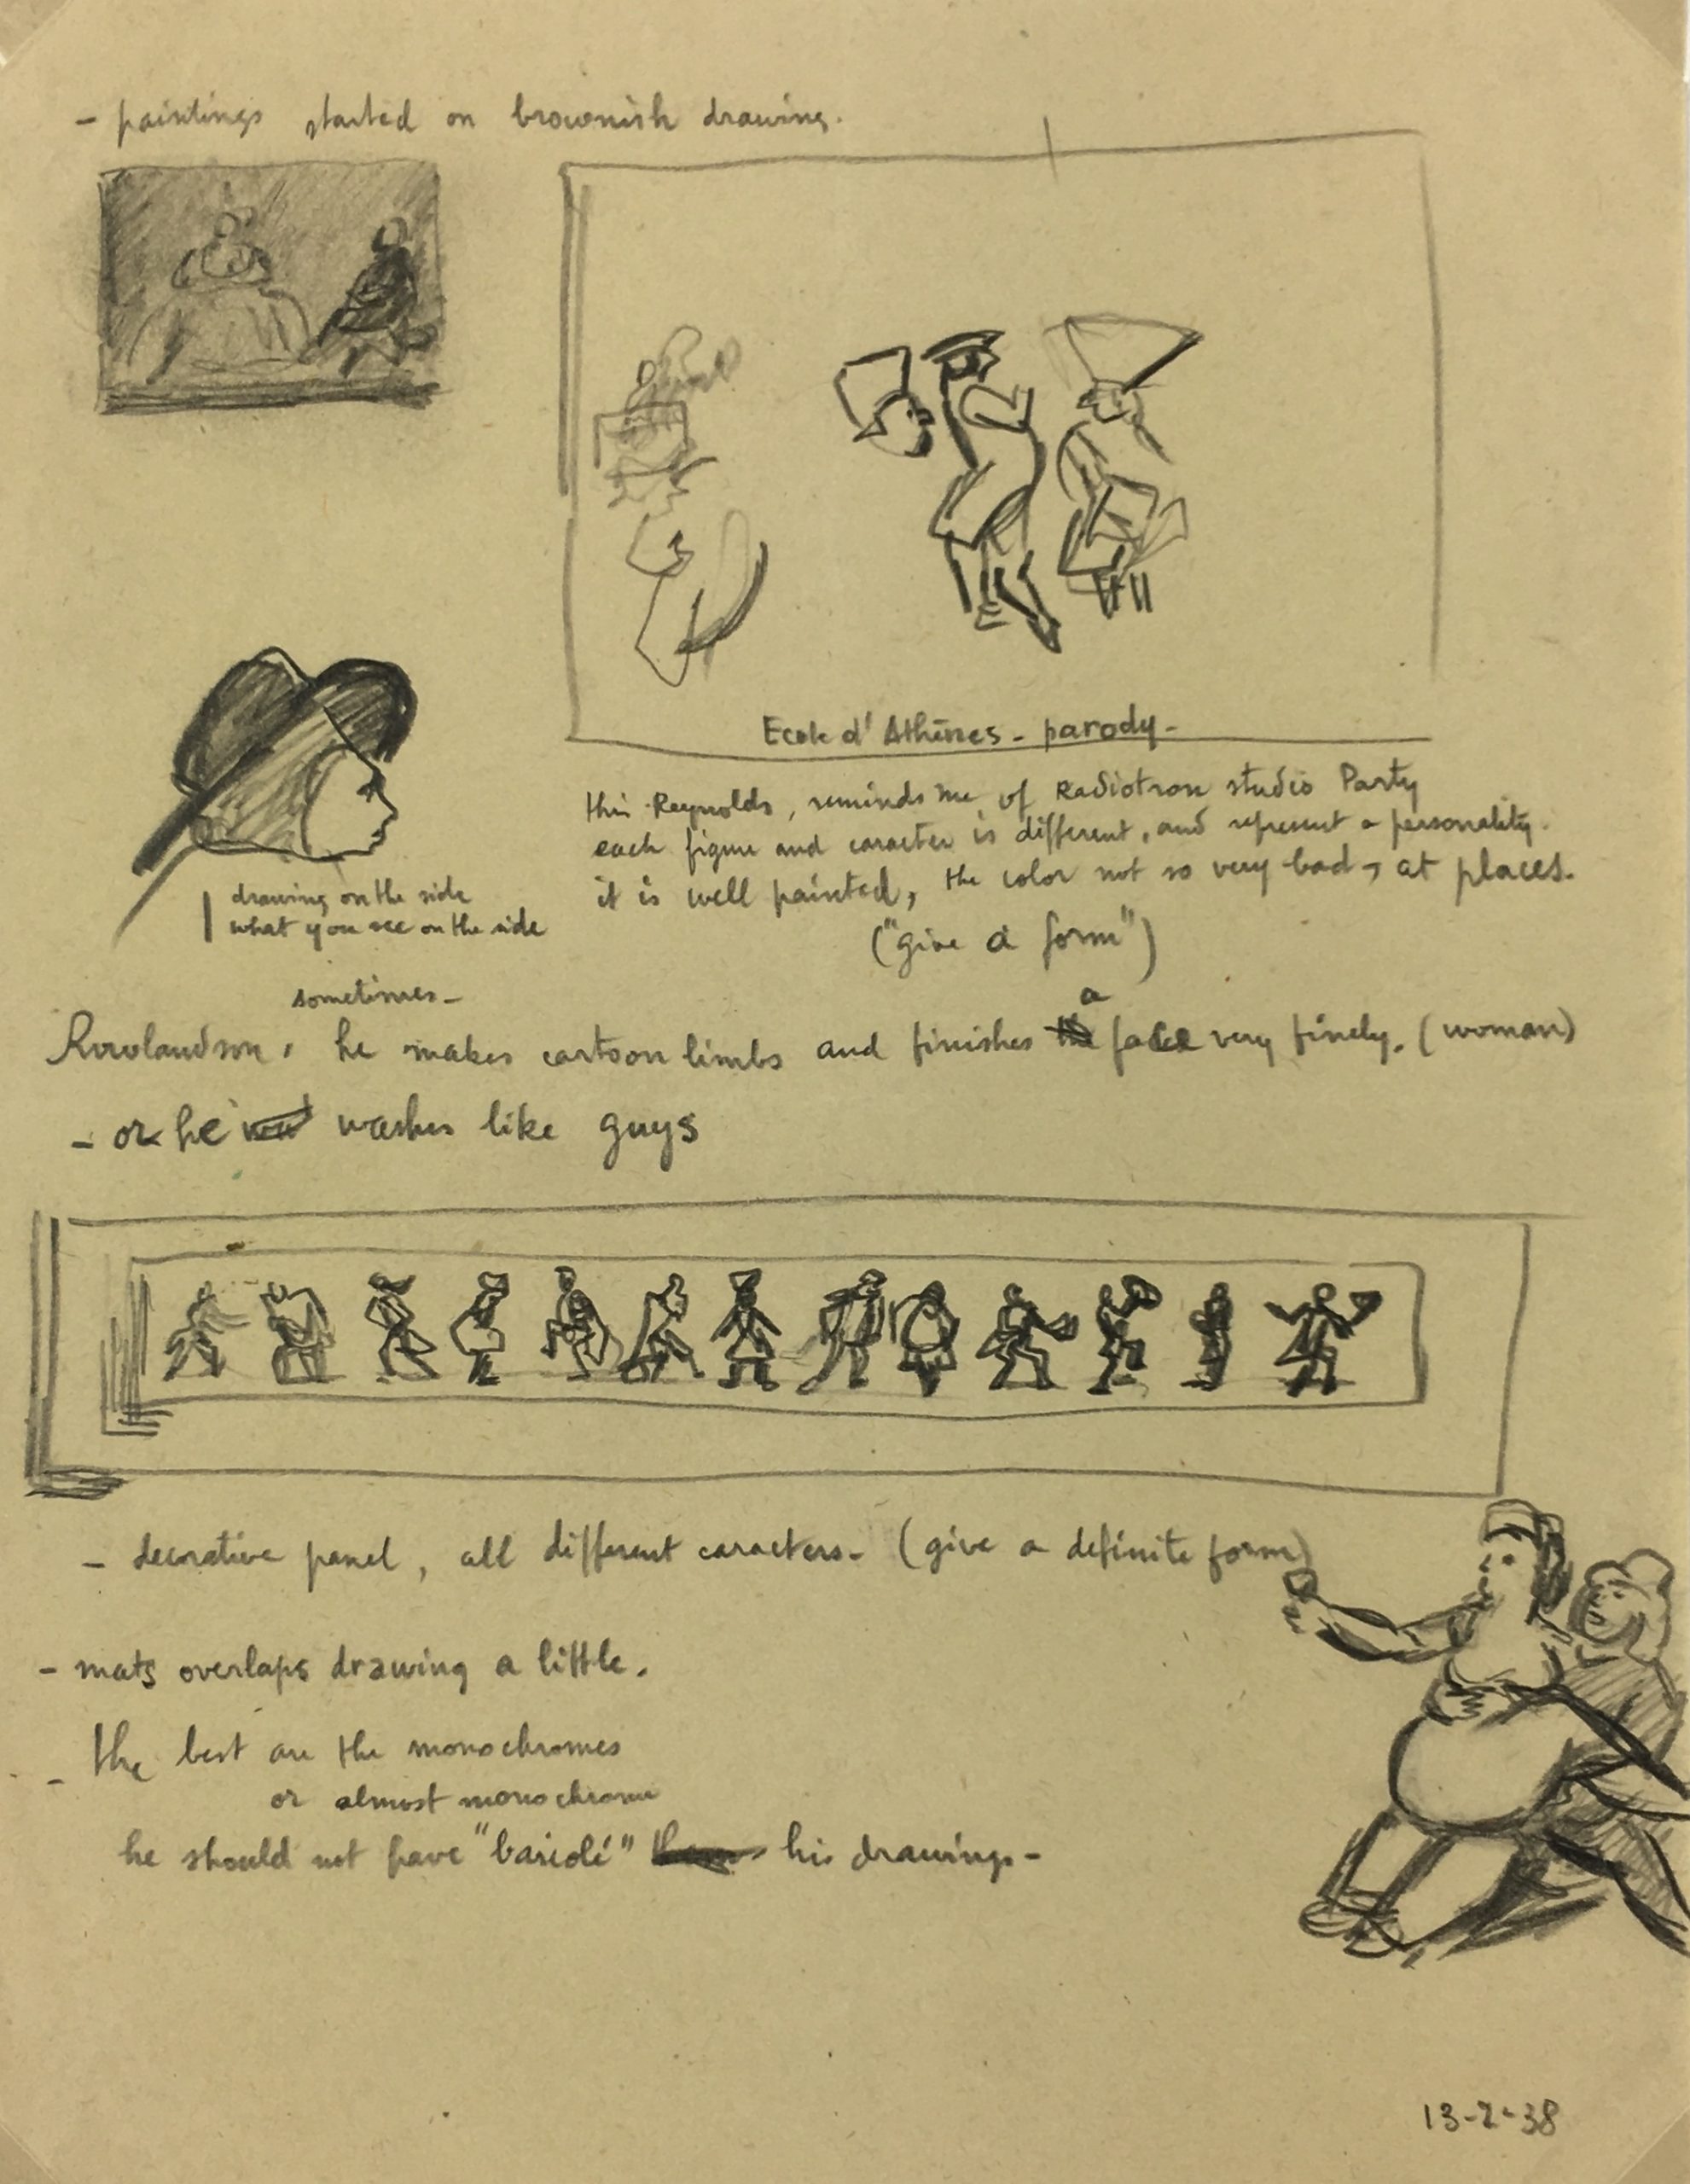 - paintings started on brownish drawing.
Ecole d'Athènes - parody -
this Reynolds, reminds me of Radiotron studio Party
each figure and caracter is different, and represent a personality.
it is well painted, the color not so very bad, at places.
("give a form")
drawing on the side
what you see on the side
sometimes -
a
Rowlandson, he makes cartoon limbs and finishes face very finely. (woman)
- or he washes like guys
- decorative panel, all different caracters - (give a definite form)
- mats overlaps drawing a little.
- the best are the monochromes
or almost monochrome
he should not have "bariolé" his drawings -
13-2-38